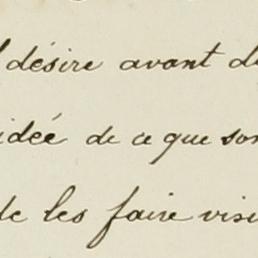 désire avant d
idée de ce que son
de les faire visi